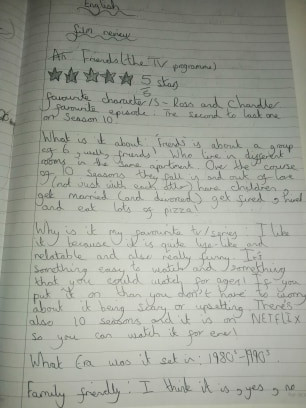 English
film review
An - Friends (the TV programme)
5/5 stars
favourite character/s - Ross and Chandler
favourite episode: The second to last one
on Season 10
What is it about "friends" is about a group
of 6, well, friends! Who live in different
rooms in the same apartment. Over the course
of 10 seasons they fall in and out of love
(not just with each other) have children
get married (and divorced) get fired, hired
and eat lots of pizza!
Why is it my favourite tv/series I like
it because it is quite life-like and
relatable and also really funny. It's
something easy to watch and something
that you could watch for ages! If you
put it on than you don't have to worry
about it being scary or upsetting. There's
also 10 seasons and it is on NETFLIX
so you can watch it for ever!
What Era was it set in: 1980's-1990's
Family friendly: I think it is, yes, no